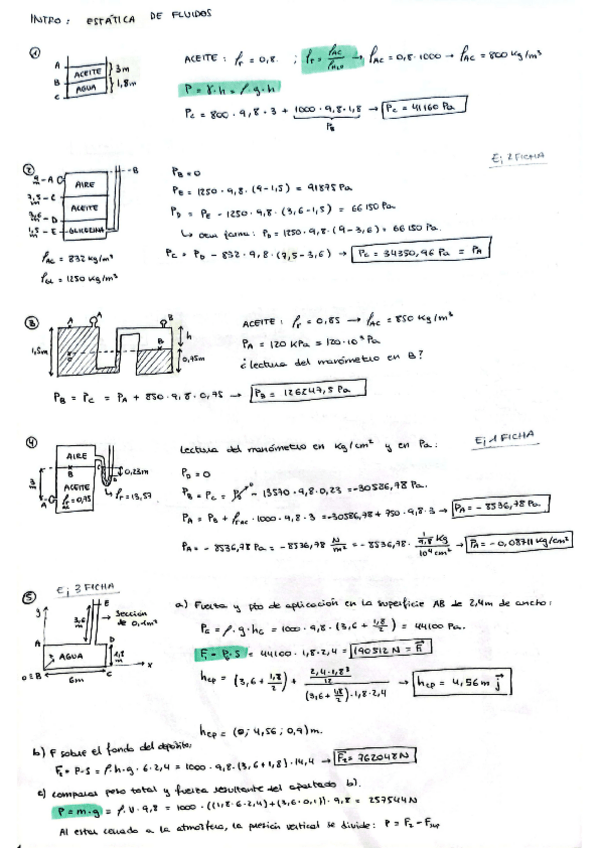 INTRO: ESTÁTICA DE FLUIDOS
① A B C ACEITE AGUA 3m 1,8m
ACEITE: ρr = 0,8. ; ρr = ρAC/ρH2O → ρAC = 0,8·1000 → ρAC = 800 kg/m³
P = γ·h = ρ·g·h
Pc = 800·9,8·3 + 1000·9,8·1,8 → Pc = 41160 Pa
PB
Ej 2 FICHA
② 9 m - A 7,5 m - C 3,6 m - D 1,5 m - E AIRE ACEITE GLICERINA B
PB = 0
PE = 1250·9,8·(9-1,5) = 91875 Pa
PD = PE - 1250·9,8·(3,6-1,5) = 66150 Pa
↳ otra forma: PD = 1250·9,8·(9-3,6) = 66150 Pa.
ρAC = 832 kg/m³
PC = PD - 832·9,8·(7,5-3,6) → PC = 34350,96 Pa = PA
ρGL = 1250 kg/m³
③ A A B B C h 1,5m 0,75m
ACEITE: ρr = 0,85 → ρAC = 850 kg/m³
PA = 120 kPa = 120·10³ Pa
¿lectura del manómetro en B?
PB = PC = PA + 850·9,8·0,75 → PB = 126247,5 Pa
④ AIRE B ACEITE ρr = 0,75 3 m A C D 0,23m ρr = 13,57
Lectura del manómetro en kg/cm² y en Pa:
Ej 1 FICHA
PD = 0
PB = PC = PD - 13570·9,8·0,23 = -30586,78 Pa.
PA = PB + ρrAC·1000·9,8·3 = -30586,78 + 750·9,8·3 → PA = -8536,78 Pa
PA = -8536,78 Pa = -8536,78 N/m² = -8536,78 · 1/9,8 kg / 10⁴ cm² → PA = -0,08711 kg/cm²
Ej 3 FICHA
⑤ y A O≡B AGUA 6m C D E x 3,6 m 1,8 m Sección de 0,1m²
a) Fuerza y pto de aplicación en la superficie AB de 2,4m de ancho:
PC = ρ·g·hc = 1000·9,8·(3,6 + 1,8/2) = 44100 Pa.
F1 = P·S = 44100·1,8·2,4 = 190512 N = F1
hcp = (3,6 + 1,8/2) + (2,4·1,8³/12) / ((3,6 + 1,8/2)·1,8·2,4) → hcp = 4,56 m j
hcp = (0; 4,56; 0,9)m.
b) F sobre el fondo del depósito:
F2 = P·S = ρ·h·g·6·2,4 = 1000·9,8·(3,6+1,8)·14,4 → F2 = 762048 N
c) comparar peso total y fuerza resultante del apartado b).
P = m·g = ρ·V·9,8 = 1000·((1,8·6·2,4)+(3,6·0,1))·9,8 = 257544 N
Al estar cerrado a la atmósfera, la presión vertical se divide: P = F2 - Fsup